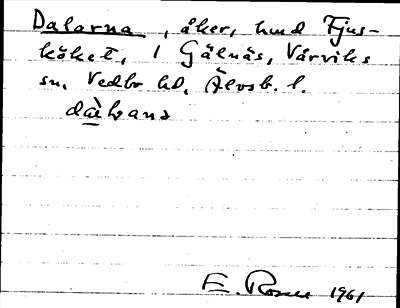 Dalarna, åker, hmd Fjus-
köket, i Gälnäs, Vårviks
sn, Vedbo hd, Älvsb. l.
E. Rosen 1961